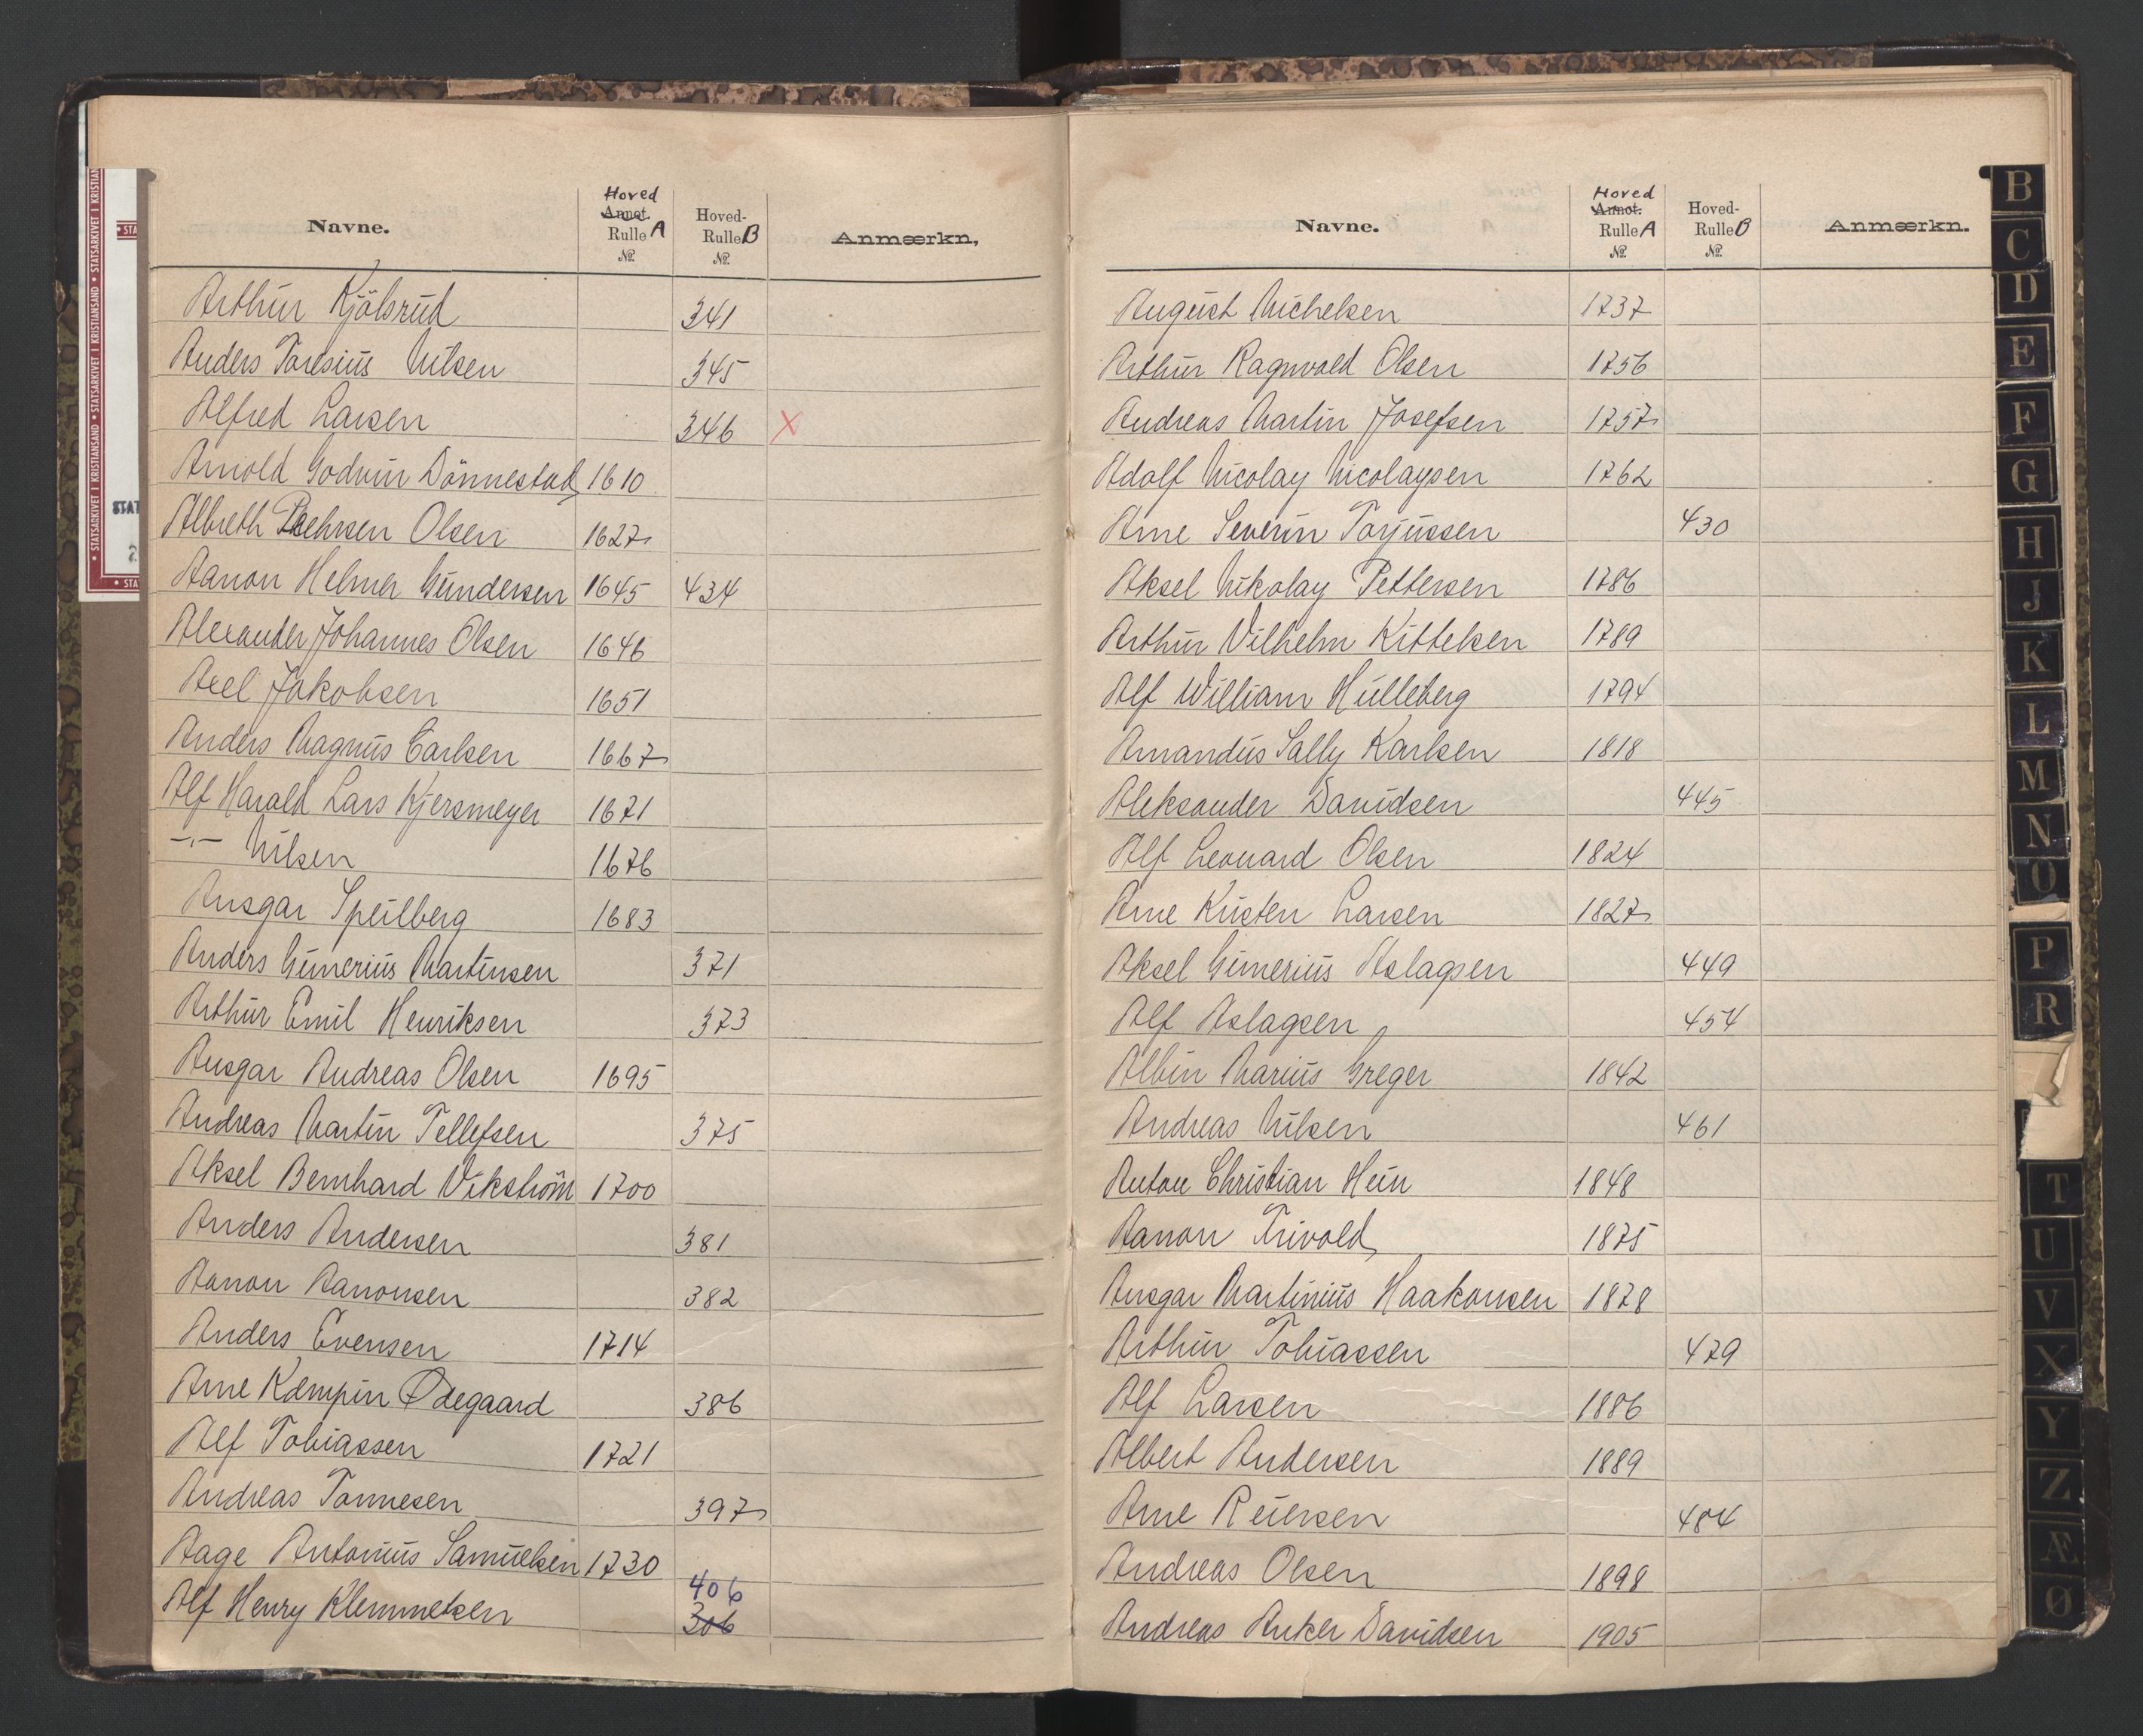 Navne.
Hoved
Annot.
Rulle A
№
Hoved-
Rulle B
№
Anmærkn.
Arthur Kjölsrud 341
Anders Toresius Nilsen 345
Alfred Larsen 346 X
Arnold Godvin Dönnestad 1610
Albreth Olsen 1627
Aanon Helmer Gundersen 1645 434
Alexander Johannes Olsen 1646
Axel Jakobsen 1651
Anders Magnus Carlsen 1667
Alf Harald Lars Kjersmeyer 1671
-"- Nilsen 1676
Ansgar Speilberg 1683
Anders Gunerius Martinsen 371
Arthur Emil Henriksen 373
Ansgar Andreas Olsen 1695
Andreas Martin Tellefsen 375
Aksel Bernhard Vikström 1700
Anders Andersen 381
Aanon Aanonsen 382
Anders Evensen 1714
Arne Kempin Ødegaard 386
Alf Tobiassen 1721
Andreas Tonnesen 397
Aage Antonius Samuelsen 1730
406
Alf Henry Klemmetsen 306
Navne.
Hoved
Annot.
Rulle A
№
Hoved-
Rulle B
№
Anmærkn.
August Michelsen 1737
Arthur Ragnvald Olsen 1756
Andreas Martin Josefsen 1757
Adolf Nicolay Nicolaysen 1762
Arne Severin Torjussen 430
Aksel Nikolay Pettersen 1786
Arthur Vilhelm Kittelsen 1789
Alf William Hulleberg 1794
Amandus Sally Karlsen 1818
Aleksander Davidsen 445
Alf Leonard Olsen 1824
Arne Kristen Larsen 1827
Aksel Gunerius Aslagsen 449
Alf Aslagsen 454
Albin Marius Greger 1842
Andreas Nilsen 461
Anton Christian Hein 1848
Aanon Trivold 1875
Ansgar Martinius Haakonsen 1878
Arthur Tobiassen 479
Alf Larsen 1886
Albert Andersen 1889
Arne Reiersen 484
Andreas Olsen 1898
Andreas Anker Davidsen 1905
B
C
D
E
F
G
H
J
K
L
M
N
O
P
R
T
U
V
X
Y
Z
Æ
Ø
STATSARKIVET I KRISTIANSAND • STATSARKIVET I KRISTIANSAND • STATSARKIVET I KRISTIAN